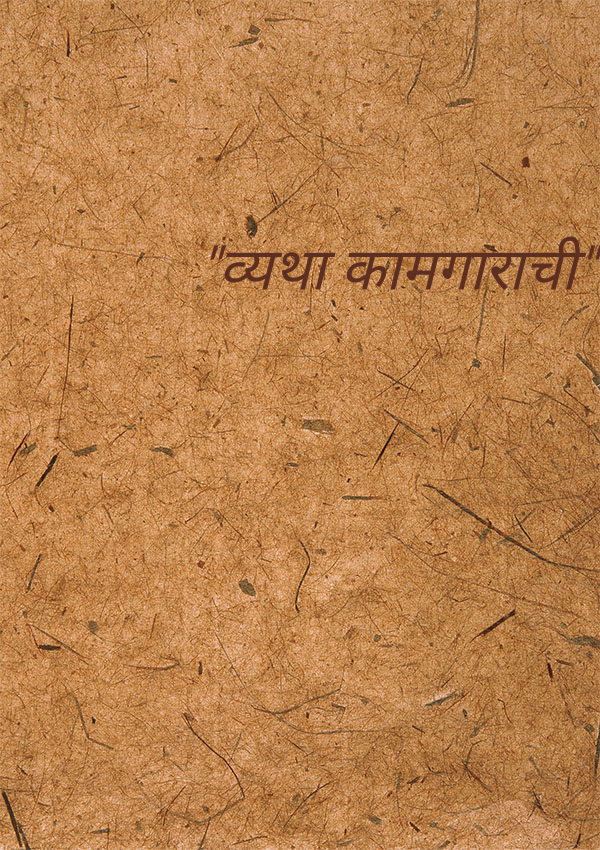 "व्यथा कामगाराची"